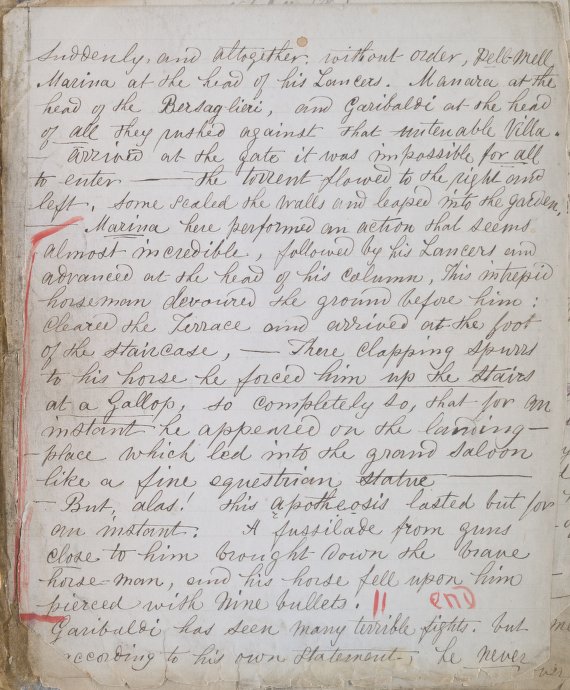 suddenly, and altogether, without order, Pell-Mell
Marina at the head of his Lancers. Manara at the
head of the Bersaglieri, and Garibaldi at the head
of all they rushed against that untenable Villa.
— Arrived at the gate it was impossible for all
to enter — the torrent flowed to the right and
left. some scaled the walls and leaped into the garden,
— Marina here performed an action that seems
almost incredible, followed by his Lancers and
advanced at the head of his column, This intrepid
horseman devoured the ground before him:
Cleared the Terrace and arrived at the foot
of the staircase, — There clapping spurrs
to his horse he forced him up the stairs
at a Gallop, so completely so, that for an
instant he appeared on the landing-
place which led into the grand saloon
like a fine equestrian statue —
— But, alas! this apotheosis lasted but for
an instant. A fussilade from guns
close to him brought down the brave
horse-man, and his horse fell upon him
pierced with nine bullets. || end
Garibaldi has seen many terrible fights. but
according to his own statement, he never